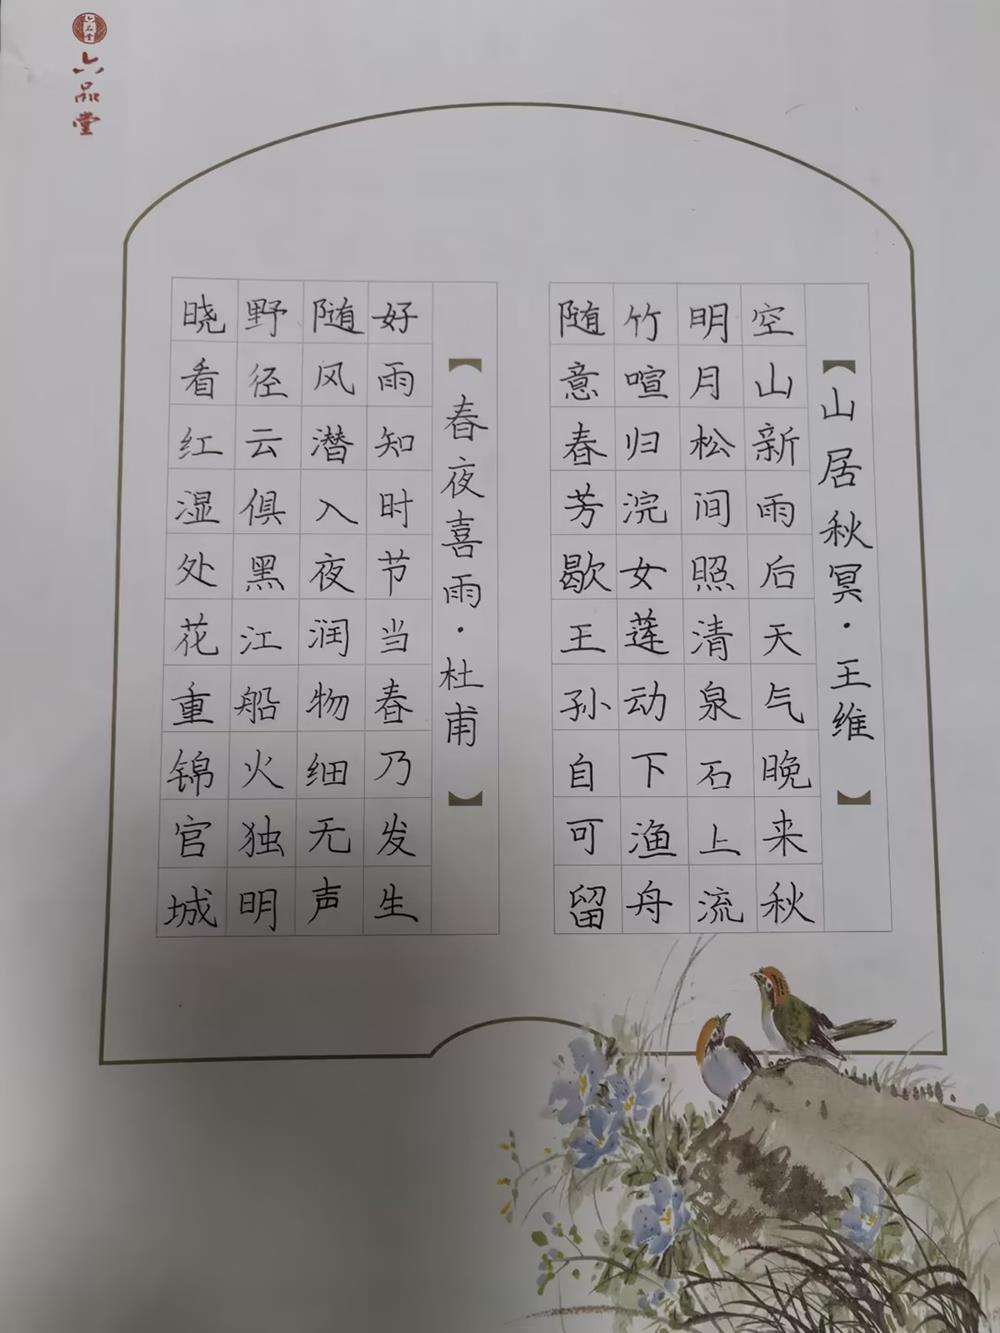 六品堂
山居秋冥·王维
空山新雨后天气晚来秋
明月松间照清泉石上流
竹喧归浣女莲动下渔舟
随意春芳歇王孙自可留
春夜喜雨·杜甫
好雨知时节当春乃发生
随风潜入夜润物细无声
野径云俱黑江船火独明
晓看红湿处花重锦官城